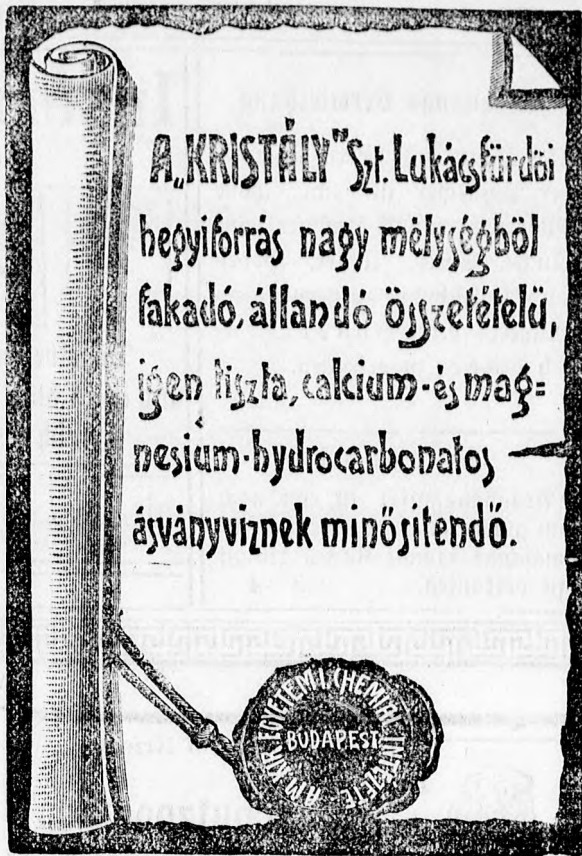 A „KRISTÁLY" Szt. Lukácsfürdői
hegyiforrás nagy mélységből
fakadó, állandó összetételű,
igen tiszta, calcium- és mag=
nesium-hydrocarbonatos
ásványvíznek minősítendő.
BUDAPEST